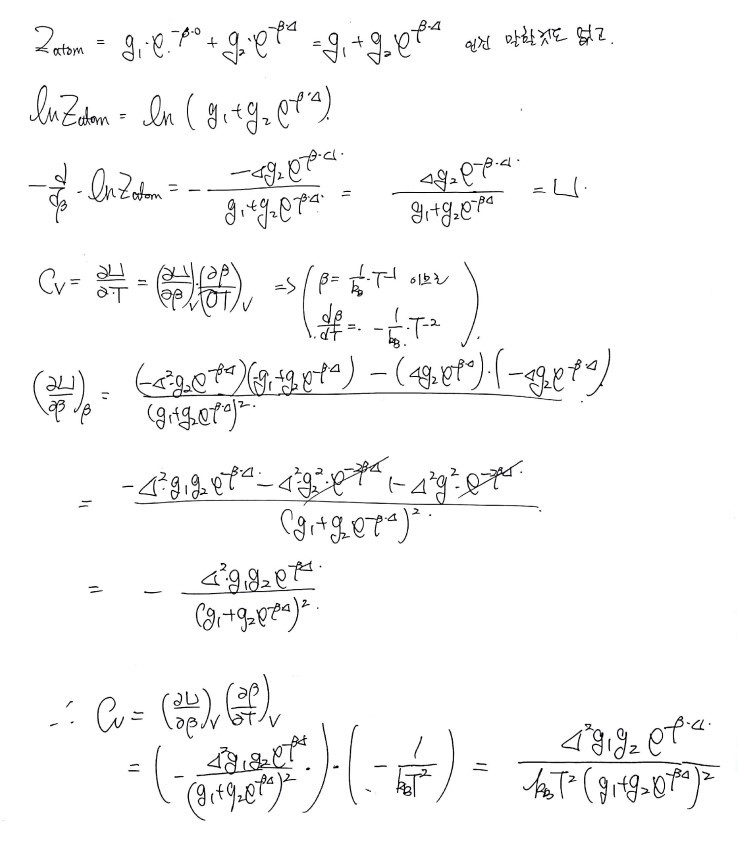 Z_atom = g₁·e^{-β·0} + g₂·e^{-β·Δ} = g₁ + g₂e^{-β·Δ} 말할것도 없고.
lnZ_atom = ln (g₁ + g₂e^{-β·Δ})
-d/dβ · lnZ_atom = - (-Δg₂e^{-β·Δ})/(g₁+g₂e^{-β·Δ}) = (Δg₂e^{-β·Δ})/(g₁+g₂e^{-βΔ}) = U.
C_V = ∂U/∂T = (∂U/∂β)_V (∂β/∂T)_V => ( β = 1/k_B · T^{-1} 이므로
dβ/dT = - 1/k_B · T^{-2} )
(∂U/∂β)_β = ((-Δ²g₂e^{-βΔ})(g₁+g₂e^{-βΔ}) - (Δg₂e^{-βΔ})·(-Δg₂e^{-βΔ}))/(g₁+g₂e^{-βΔ})²
= (-Δ²g₁g₂e^{-β·Δ} - Δ²g₂²·e^{-2βΔ} + Δ²g²·e^{-2βΔ})/(g₁+g₂e^{-β·Δ})²
= - (Δ²g₁g₂e^{-βΔ})/(g₁+g₂e^{-βΔ})²
∴ C_V = (∂U/∂β)_V (∂β/∂T)_V
= (- (Δ²g₁g₂e^{-βΔ})/(g₁+g₂e^{-βΔ})²)·(- 1/(k_BT²)) = (Δ²g₁g₂e^{-β·Δ})/(k_BT²(g₁+g₂e^{-βΔ})²)